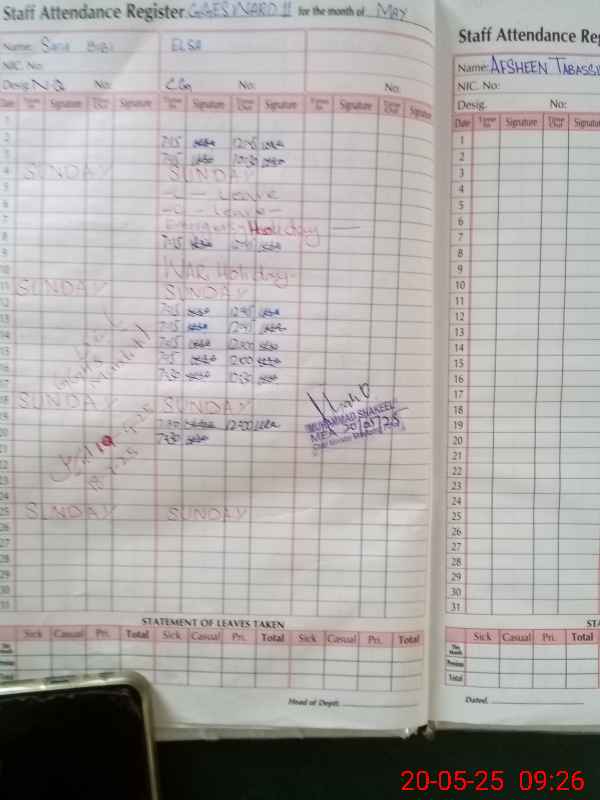 Staff Attendance Register GGES WARD II for the month of MAY
Name: Sana BiBi ELSA
NIC. No
Desig. N.Q No: C.G No: No:
Date Time In Signature Time Out Signature Time In Signature Time Out Signature Time In Signature Time Out Signature
1
2 7:15 12:45
3 7:15 10:30
4 SUNDAY SUNDAY
5 - L - Leave
6 - L - Leave -
7 Emergency Holiday
8 7:15
9
10 WAR Holiday
11 SUNDAY SUNDAY
12 7:15 12:45
13 7:15
14 7:15 12:00
15 7:15 12:00
16 7:30 10:30
17
18 SUNDAY SUNDAY
19 7:30 12:00
20 7:30
21
22
23
24
25 SUNDAY SUNDAY
26
27
28
29
30
31
MUHAMMAD SHAKEEL
MEA 20/05/25
STATEMENT OF LEAVES TAKEN
Sick Casual Pri. Total Sick Casual Pri. Total Sick Casual Pri. Total
This Month
Previous
Total
Head of Deptt:
Staff Attendance Reg
Name: AFSHEEN TABASSU
NIC. No:
Desig. No:
Date Time In Signature Time Out Signatu
1
2
3
4
5
6
7
8
9
10
11
12
13
14
15
16
17
18
19
20
21
22
23
24
25
26
27
28
29
30
31
STA
Sick Casual Pri. Total
This Month
Previous
Total
Dated.
20-05-25 09:26